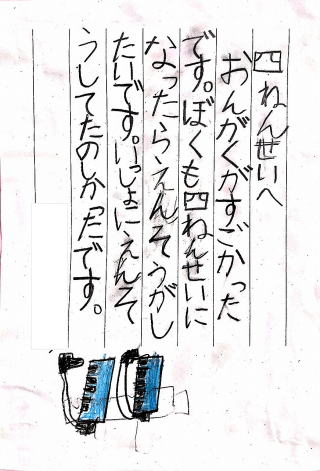 四ねんせいへ
おんがくがすごかった
です。ぼくも四ねんせいに
なったらえんそうがし
たいです。いっしょにえんそ
うしてたのしかったです。